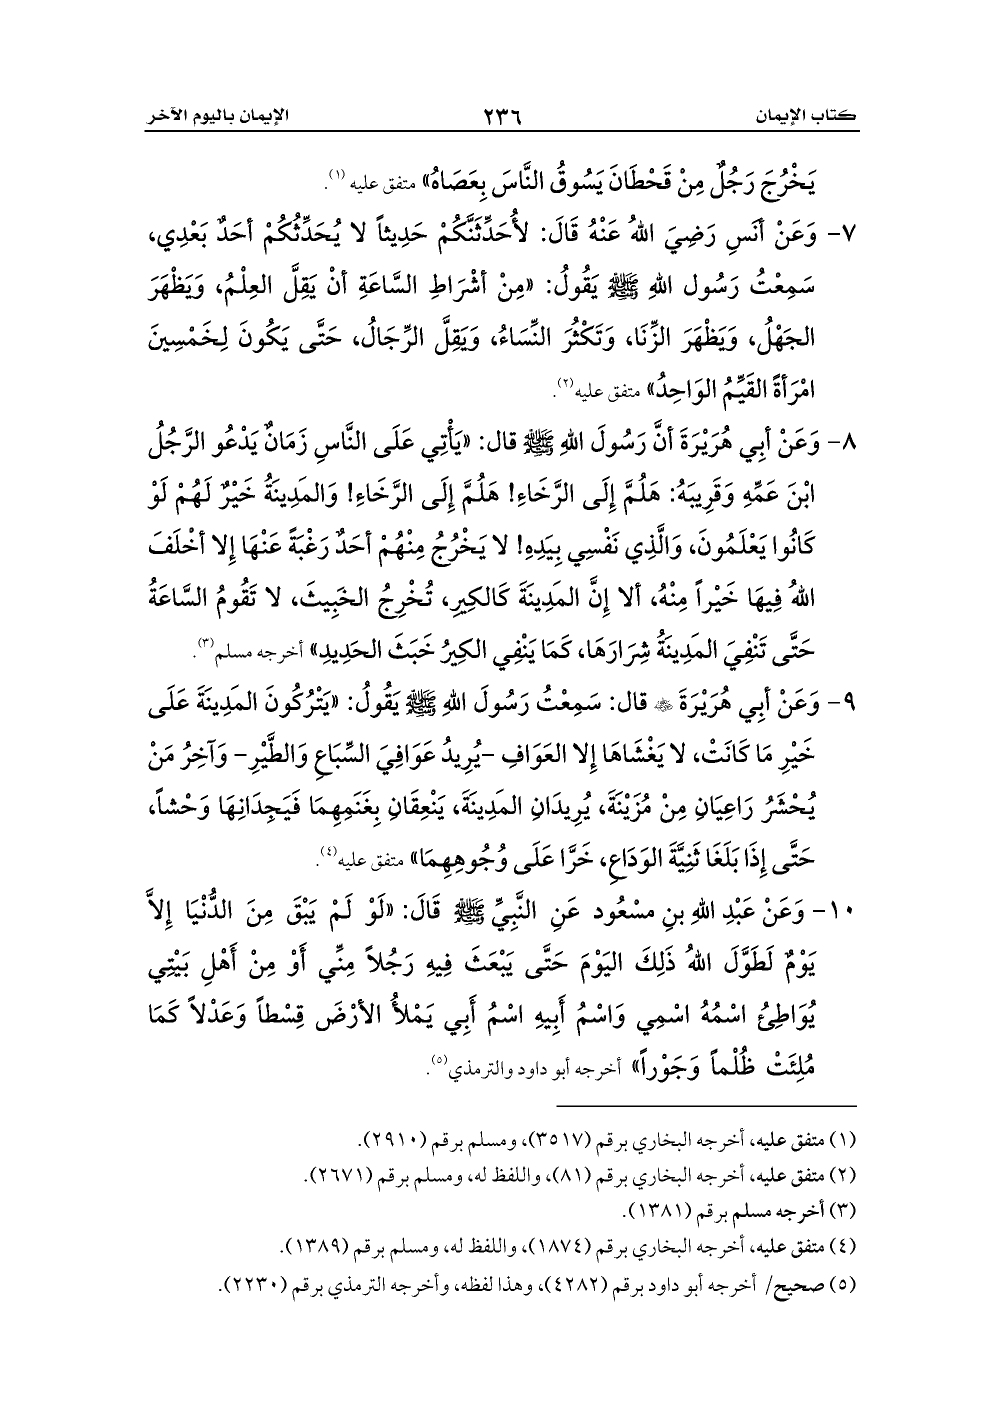 كتاب الإيمان ٢٣٦ الإيمان باليوم الآخر
يَخْرُجَ رَجُلٌ مِنْ قَحْطَانَ يَسُوقُ النَّاسَ بِعَصَاهُ» متفق عليه (١).
٧- وَعَنْ أنَسٍ رَضِيَ اللهُ عَنْهُ قَالَ: لأُحَدِّثَنَّكُمْ حَدِيثاً لا يُحَدِّثُكُمْ أحَدٌ بَعْدِي،
سَمِعْتُ رَسُول اللهِ ﷺ يَقُولُ: «مِنْ أشْرَاطِ السَّاعَةِ أنْ يَقِلَّ العِلْمُ، وَيَظْهَرَ
الجَهْلُ، وَيَظْهَرَ الزِّنَا، وَتَكْثُرَ النِّسَاءُ، وَيَقِلَّ الرِّجَالُ، حَتَّى يَكُونَ لِخَمْسِينَ
امْرَأةً القَيِّمُ الوَاحِدُ» متفق عليه(٢).
٨- وَعَنْ أبِي هُرَيْرَةَ أنَّ رَسُولَ اللهِ ﷺ قال: «يَأْتِي عَلَى النَّاسِ زَمَانٌ يَدْعُو الرَّجُلُ
ابْنَ عَمِّهِ وَقَرِيبَهُ: هَلُمَّ إِلَى الرَّخَاءِ! هَلُمَّ إِلَى الرَّخَاءِ! وَالمَدِينَةُ خَيْرٌ لَهُمْ لَوْ
كَانُوا يَعْلَمُونَ، وَالَّذِي نَفْسِي بِيَدِهِ! لا يَخْرُجُ مِنْهُمْ أحَدٌ رَغْبَةً عَنْهَا إلا أخْلَفَ
اللهُ فِيهَا خَيْراً مِنْهُ، ألا إنَّ المَدِينَةَ كَالكِيرِ، تُخْرِجُ الخَبِيثَ، لا تَقُومُ السَّاعَةُ
حَتَّى تَنْفِيَ المَدِينَةُ شِرَارَهَا، كَمَا يَنْفِي الكِيرُ خَبَثَ الحَدِيدِ» أخرجه مسلم(٣).
٩- وَعَنْ أبِي هُرَيْرَةَ ﵁ قال: سَمِعْتُ رَسُولَ اللهِ ﷺ يَقُولُ: «يَتْرُكُونَ المَدِينَةَ عَلَى
خَيْرِ مَا كَانَتْ، لا يَغْشَاهَا إلا العَوَافِ -يُرِيدُ عَوَافِيَ السِّبَاعِ وَالطَّيْرِ- وَآخِرُ مَنْ
يُحْشَرُ رَاعِيَانِ مِنْ مُزَيْنَةَ، يُرِيدَانِ المَدِينَةَ، يَنْعِقَانِ بِغَنَمِهِمَا فَيَجِدَانِهَا وَحْشاً،
حَتَّى إذَا بَلَغَا ثَنِيَّةَ الوَدَاعِ، خَرَّا عَلَى وُجُوهِهِمَا» متفق عليه(٤).
١٠- وَعَنْ عَبْدِ اللهِ بنِ مسْعُود عَنِ النَّبِيِّ ﷺ قَالَ: «لَوْ لَمْ يَبْقَ مِنَ الدُّنْيَا إلاَّ
يَوْمٌ لَطَوَّلَ اللهُ ذَلِكَ اليَوْمَ حَتَّى يَبْعَثَ فِيهِ رَجُلاً مِنِّي أَوْ مِنْ أَهْلِ بَيْتِي
يُوَاطِئُ اسْمُهُ اسْمِي وَاسْمُ أَبِيهِ اسْمُ أَبِي يَمْلأُ الأرْضَ قِسْطاً وَعَدْلاً كَمَا
مُلِئَتْ ظُلْماً وَجَوْراً» أخرجه أبو داود والترمذي(٥).
(١) متفق عليه، أخرجه البخاري برقم (٣٥١٧)، ومسلم برقم (٢٩١٠).
(٢) متفق عليه، أخرجه البخاري برقم (٨١)، واللفظ له، ومسلم برقم (٢٦٧١).
(٣) أخرجه مسلم برقم (١٣٨١).
(٤) متفق عليه، أخرجه البخاري برقم (١٨٧٤)، واللفظ له، ومسلم برقم (١٣٨٩).
(٥) صحيح/ أخرجه أبو داود برقم (٤٢٨٢)، وهذا لفظه، وأخرجه الترمذي برقم (٢٢٣٠).